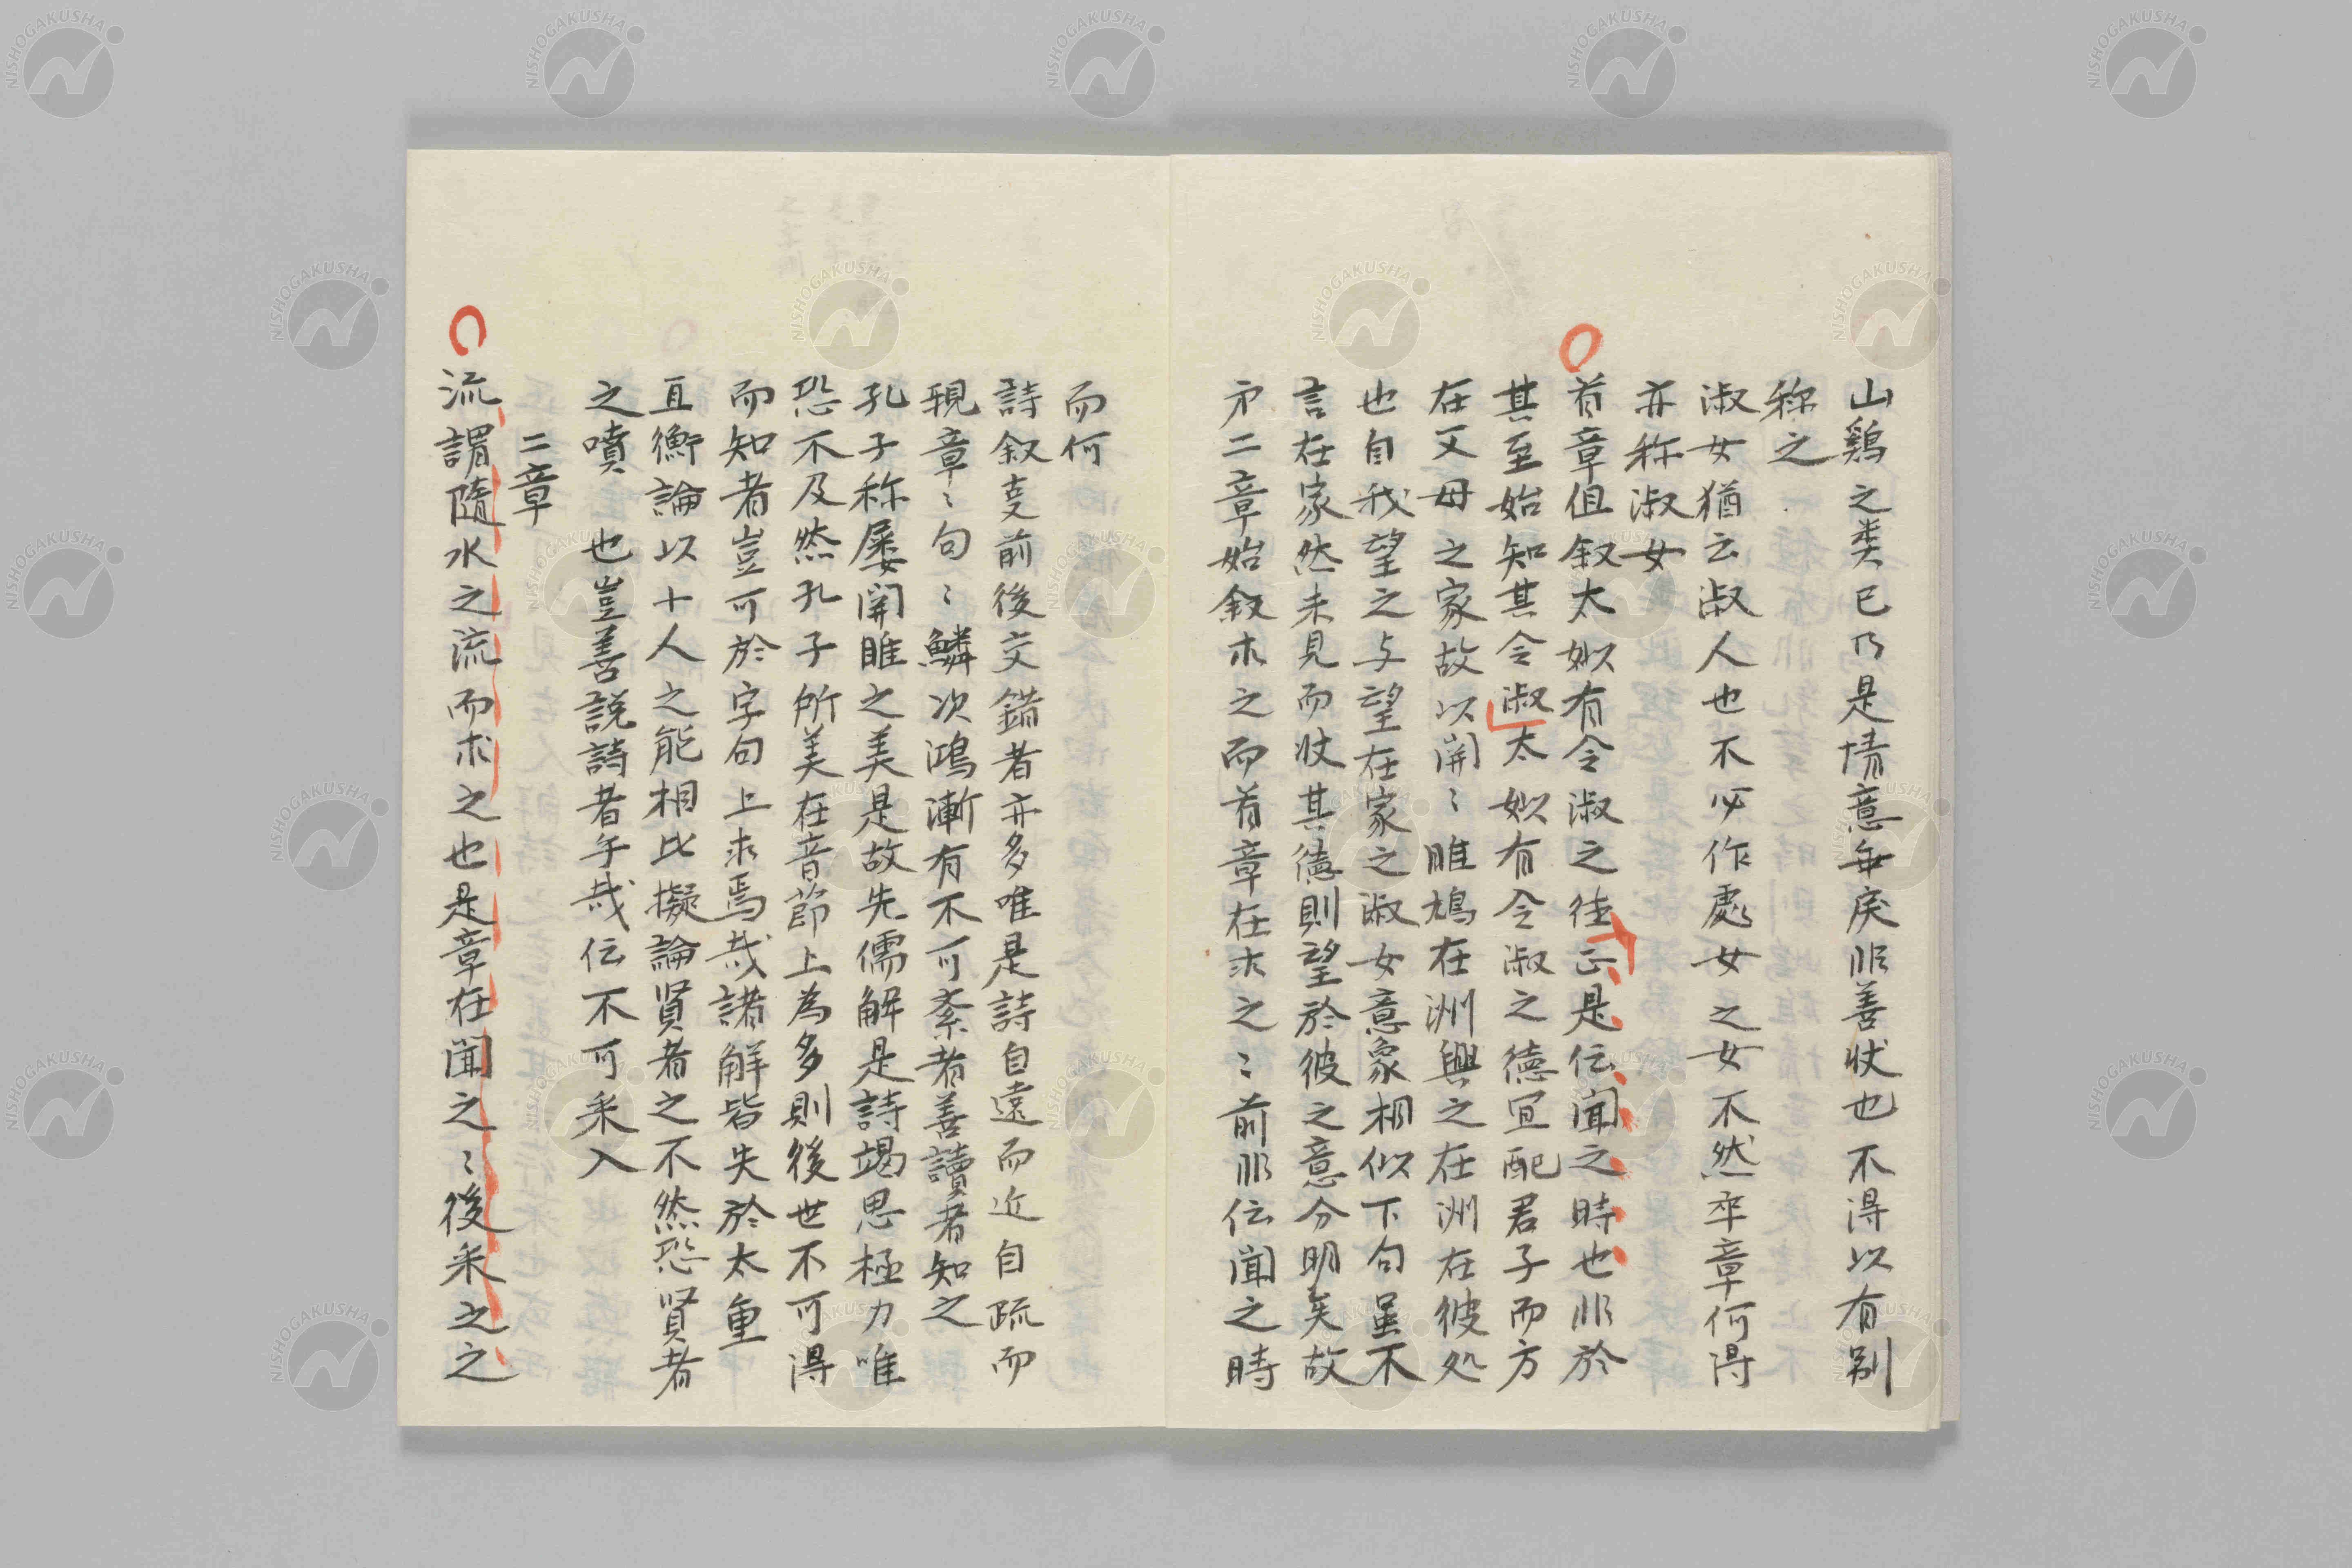 山鶏之类已乃是情意毎戻非善状也不得以有别
称之
淑女猶云淑人也不必作處女之女不然卒章何得
亦称淑女
首章但叙太姒有令淑之徳正是伝聞之時也非於
其至始知其令淑太姒有令淑之徳冝配君子而方
在父母之家故以関〻雎鳩在洲興之在洲在彼処
也自我望之与望在家之淑女意象相似下句虽不
言在家然未見而状其徳則望於彼之意分明矣故
第二章始叙求之而首章在求之〻前非伝聞之時
而何
詩叙支前後交錯者亦多唯是詩自遠而近自疏而
親章〻句〻鱗次鴻漸有不可紊者善讀者知之
孔子称屡関雎之美是故先儒解是詩竭思極力唯
恐不及然孔子所美在音節上為多則後世不可得
而知者豈可於字句上求焉哉諸解皆失於太重
且衡論以十人之能相比擬論賢者之不然恐賢者
之噴 也豈善説詩者乎哉伝不可采入
二章
流謂隨水之流而求之也是章在聞之〻後采之之
NISHOGAKUSHA